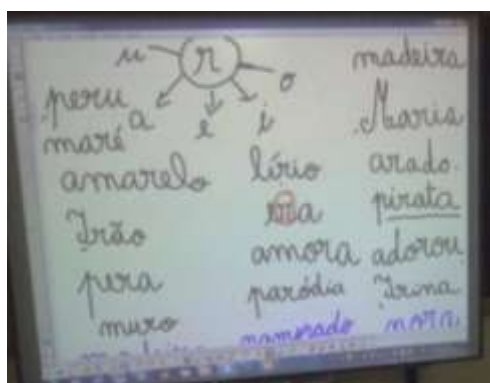 u r o
a e i
peru
maré
amarelo
Irão
pera
muro
lírio
amora
paródia
namorado
madeira
Maria
arado.
pirata
adorou
Irina
nora